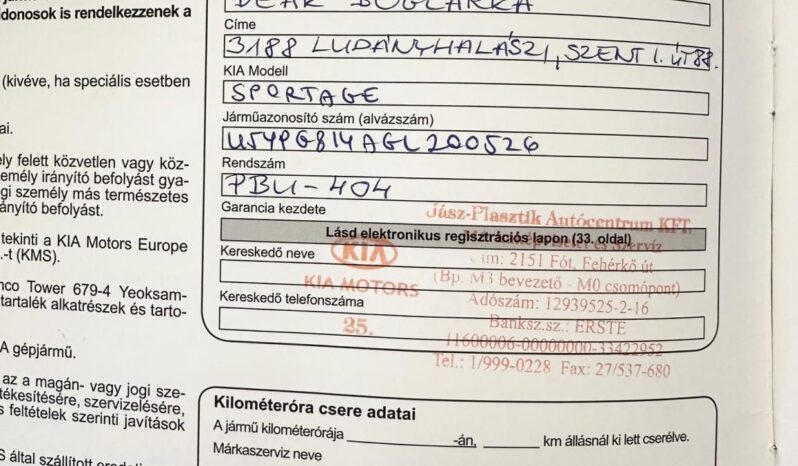 jdonosok is rendelkezzenek a
(kivéve, ha speciális esetben
ai.
ely felett közvetlen vagy köz-
emély irányító befolyást gya-
gi személy más természetes
rányító befolyást.
tekinti a KIA Motors Europe
.-t (KMS).
nco Tower 679-4 Yeoksam-
tartalék alkatrészek és tarto-
A gépjármű.
az a magán- vagy jogi sze-
tékesítésére, szervizelésére,
s feltételek szerinti javítások
S által szállított eredeti
DEÁK BOGLÁRKA
Címe
3188 LUDÁNYHALÁSZI, SZENT I. ÚT 88.
KIA Modell
SPORTAGE
Járműazonosító szám (alvázszám)
U5YPG814AGL200526
Rendszám
PBU-404
Garancia kezdete
Lásd elektronikus regisztrációs lapon (33. oldal)
Kereskedő neve
Kereskedő telefonszáma
KIA
KIA MOTORS
25.
Jász-Plasztik Autócentrum KFT.
Cím: 2151 Fót, Fehérkő út
(Bp. M3 bevezető - M0 csomópont)
Adószám: 12939525-2-16
Banksz.sz.: ERSTE
11600006-00000000-33422952
Tel.: 1/999-0228 Fax: 27/537-680
Kilométeróra csere adatai
A jármű kilométerórája -án, km állásnál ki lett cserélve.
Márkaszerviz neve